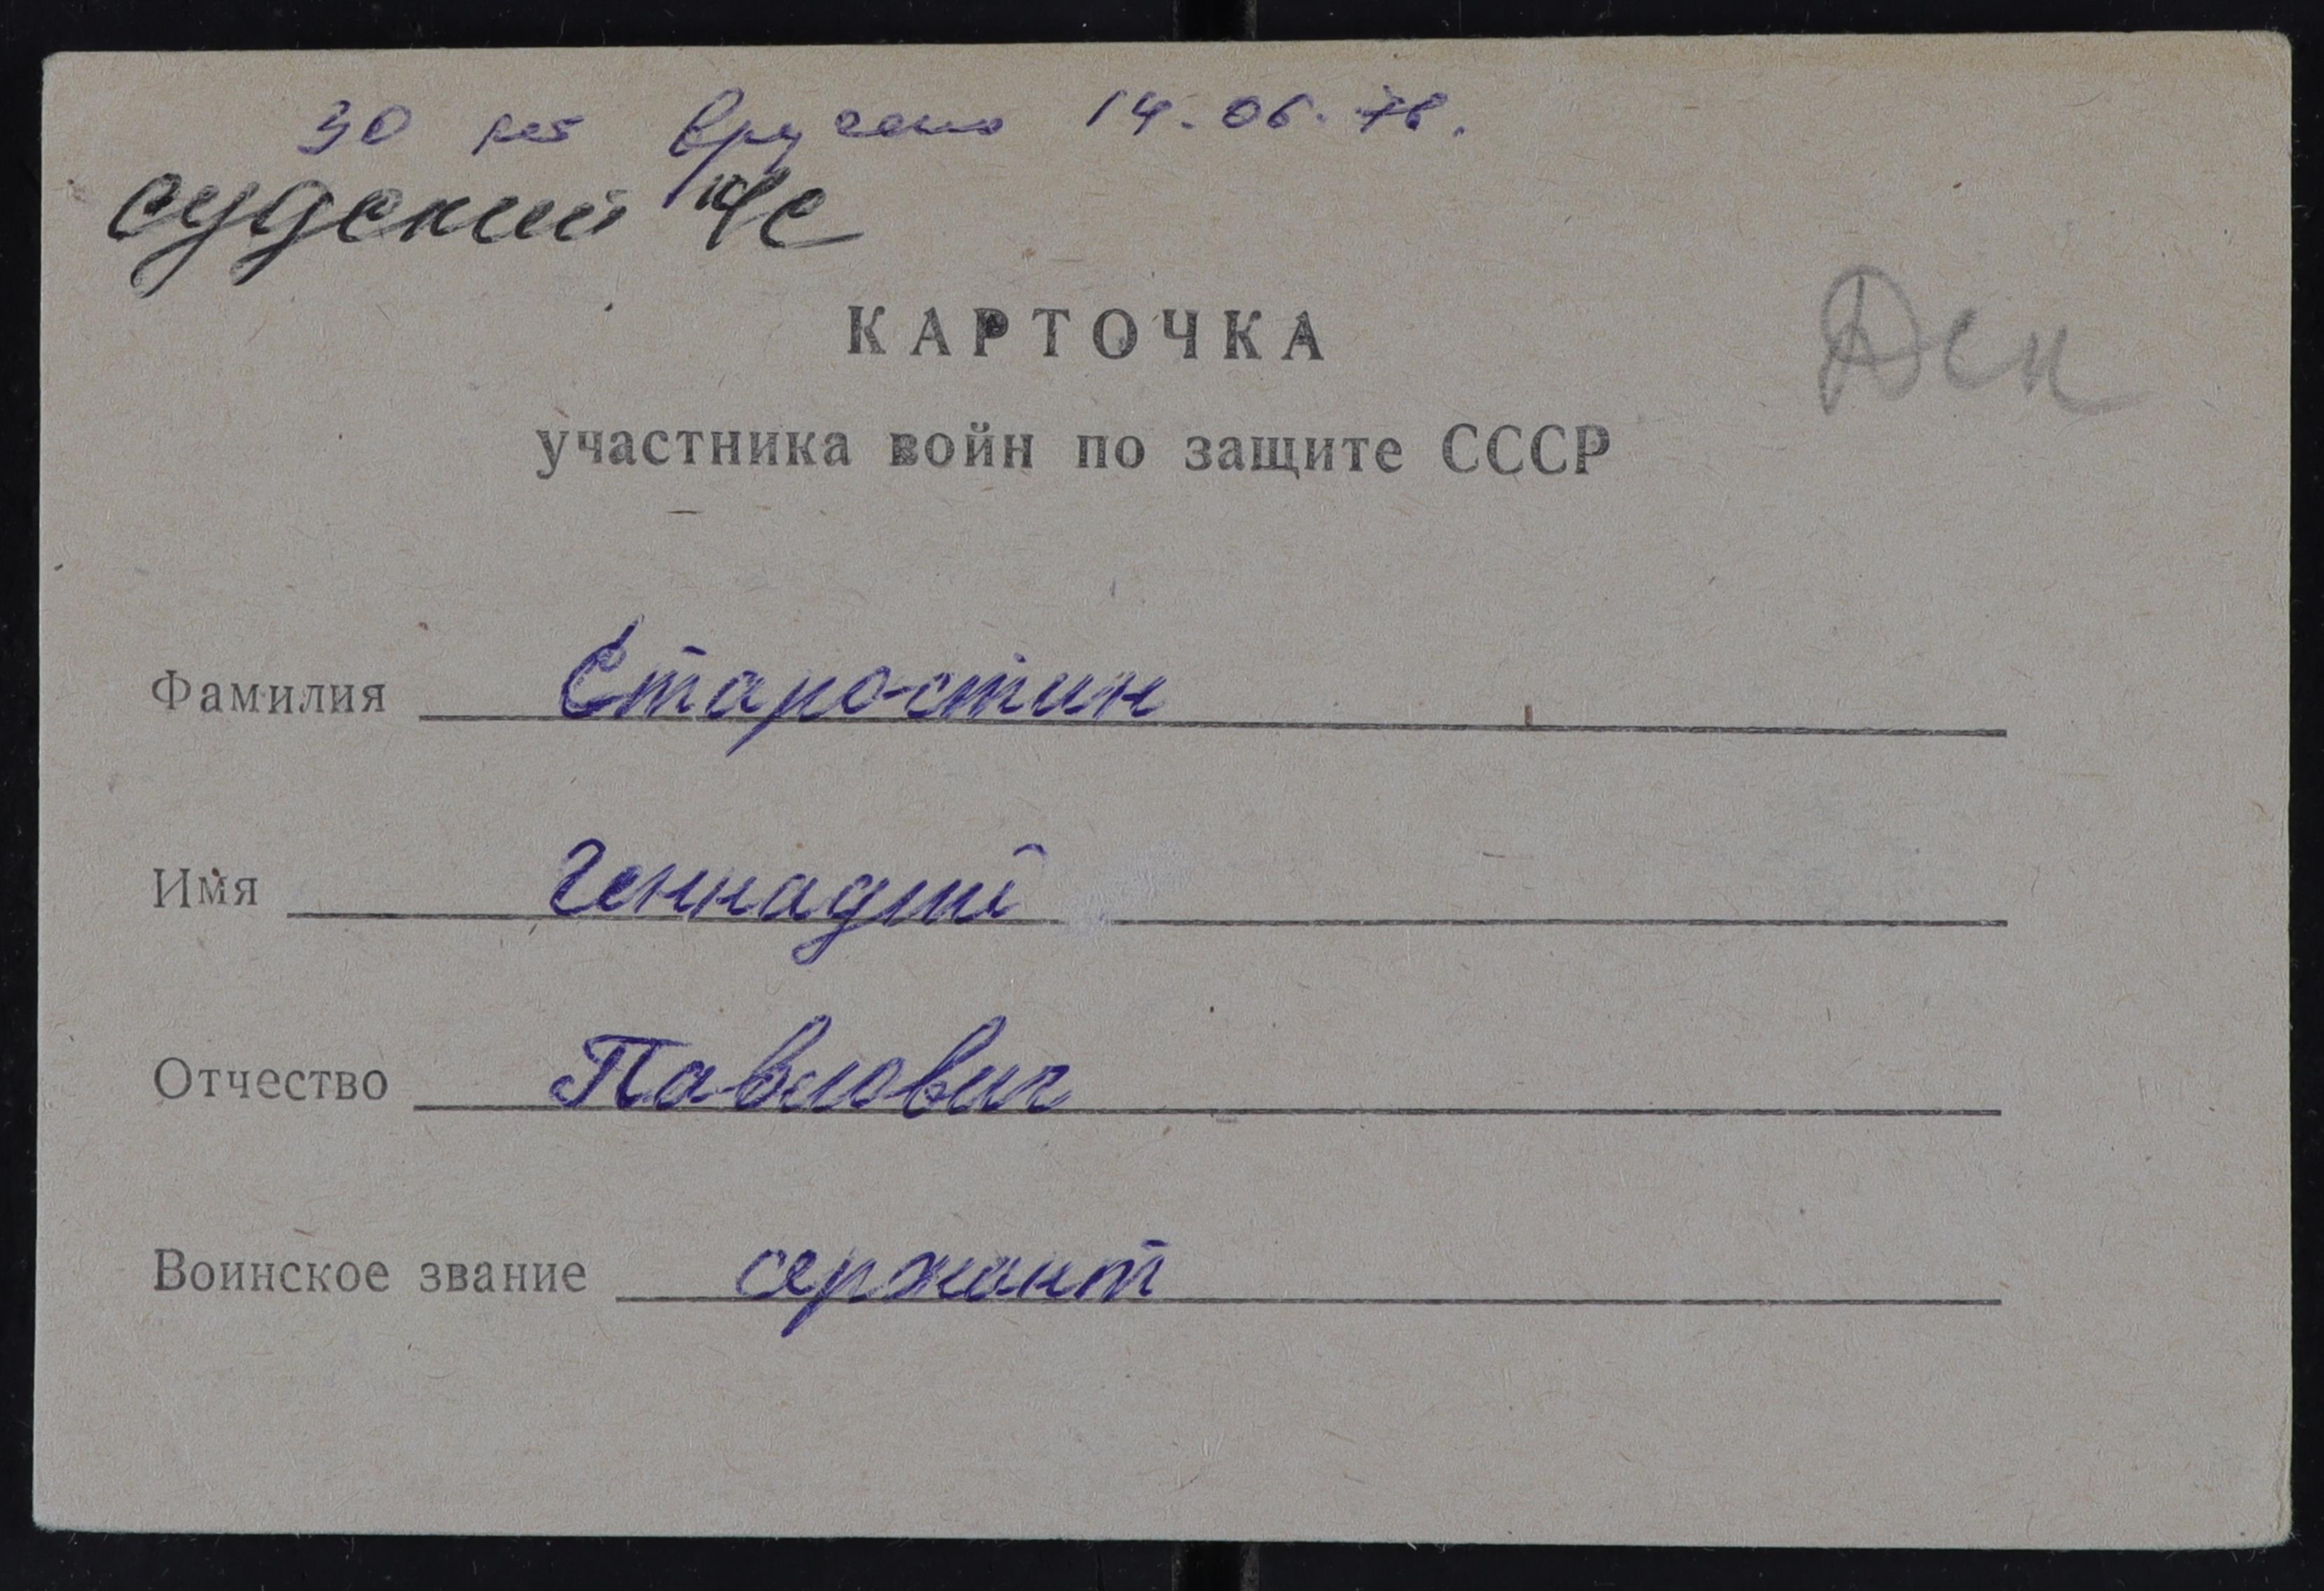 30 лет вручено 14.06.78.
судский ЧС
Дск
КАРТОЧКА
участника войн по защите СССР
Фамилия Старостин
Имя Геннадий
Отчество Павлович
Воинское звание сержант